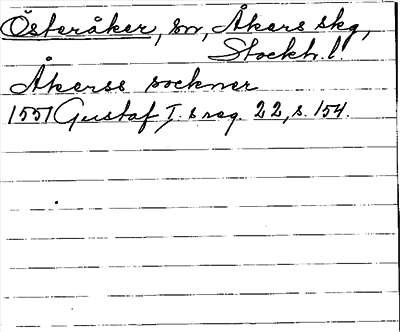 Österåker, sn, Åkers skg,
Stockh. l.
Åkerss sockner
1551 Gustaf I:s reg. 22, s. 154.